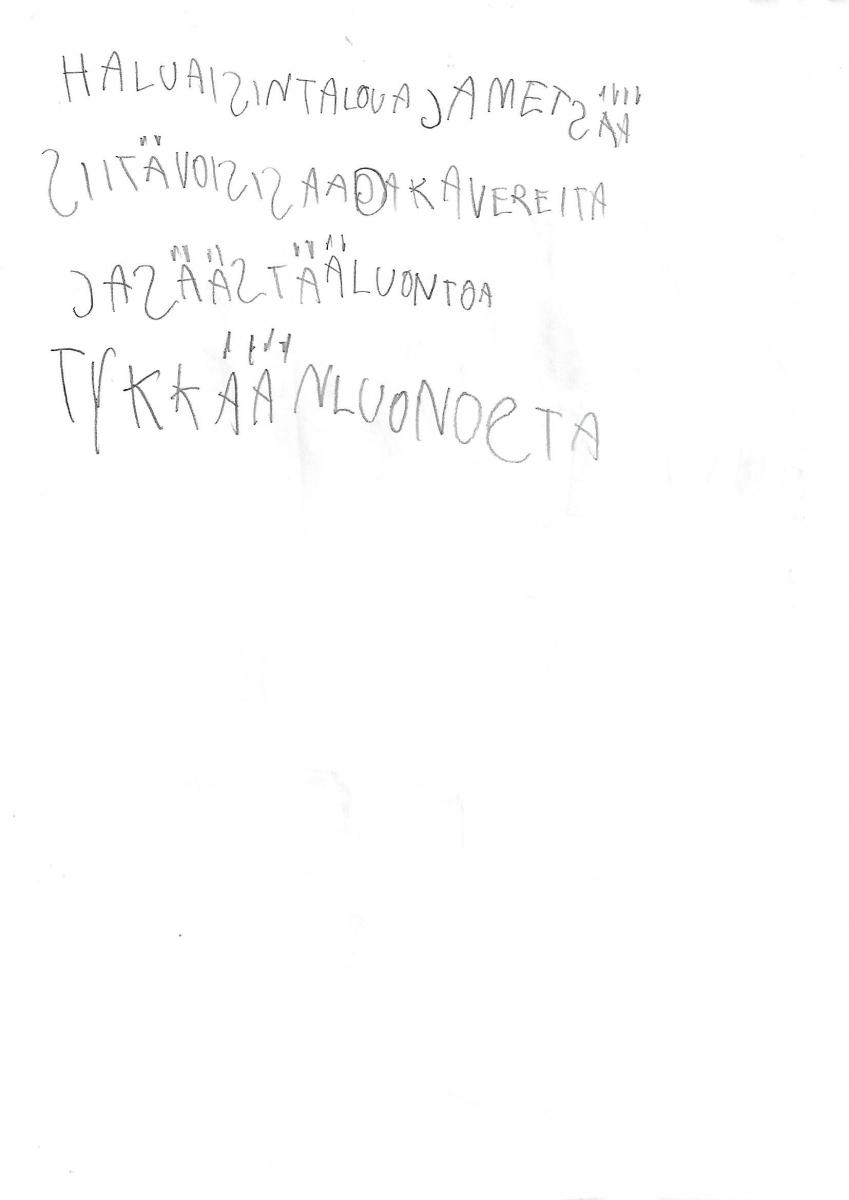 HALUAISINTALOUAJAMETSÄÄ
SIITÄVOISISAADAKAVEREITA
JASÄÄSTÄÄLUONTOA
TYKKÄÄNLUONOSTA